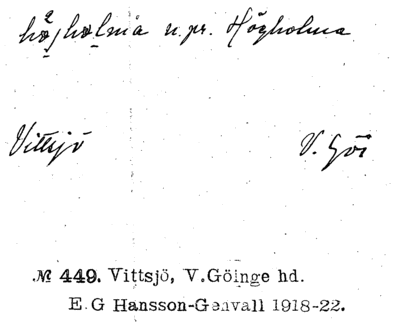 højholma n. pr. Högholma
Vittsjö V. Gö
№ 449. Vittsjö, V.Göinge hd.
E.G Hansson-Genvall 1918-22.